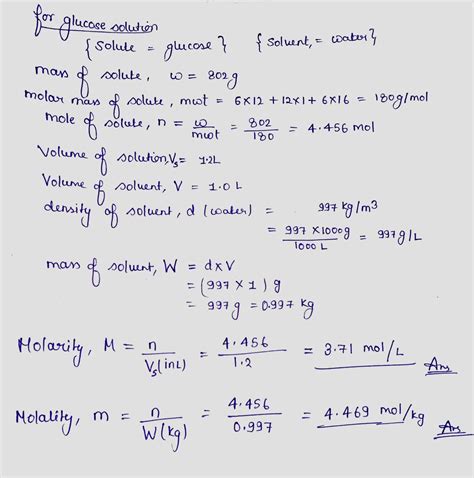 for glucose solution
{ Solute = glucose } { Solvent, = water }
mass of solute, w = 802g
molar mass of solute, mwt = 6×12 + 12×1 + 6×16 = 180g/mol
mole of solute, n = w/mwt = 802/180 = 4.456 mol
Volume of solution, Vs = 1.2L
Volume of solvent, V = 1.0 L
density of solvent, d (water) = 997 kg/m3
= 997 × 1000g / 1000 L = 997g/L
mass of solvent, W = d×V
= (997 × 1) g
= 997g = 0.997 kg
Molarity, M = n/Vs(in L) = 4.456/1.2 = 3.71 mol/L Ans
Molality, m = n/W(kg) = 4.456/0.997 = 4.469 mol/kg Ans